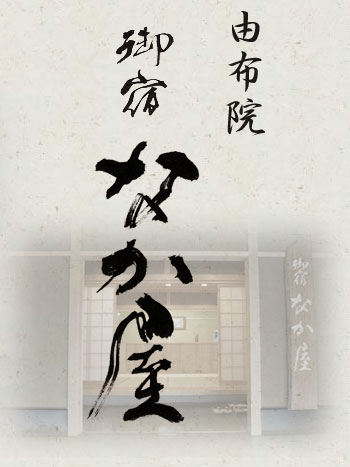 由布院
御宿
なか屋
御宿
なか屋